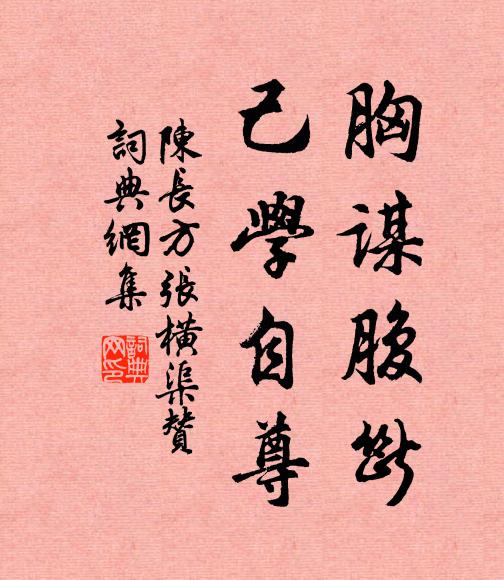 胸謀腹斷
己學自尊
陳長方張橫渠贊
詞典網集
詞典網印